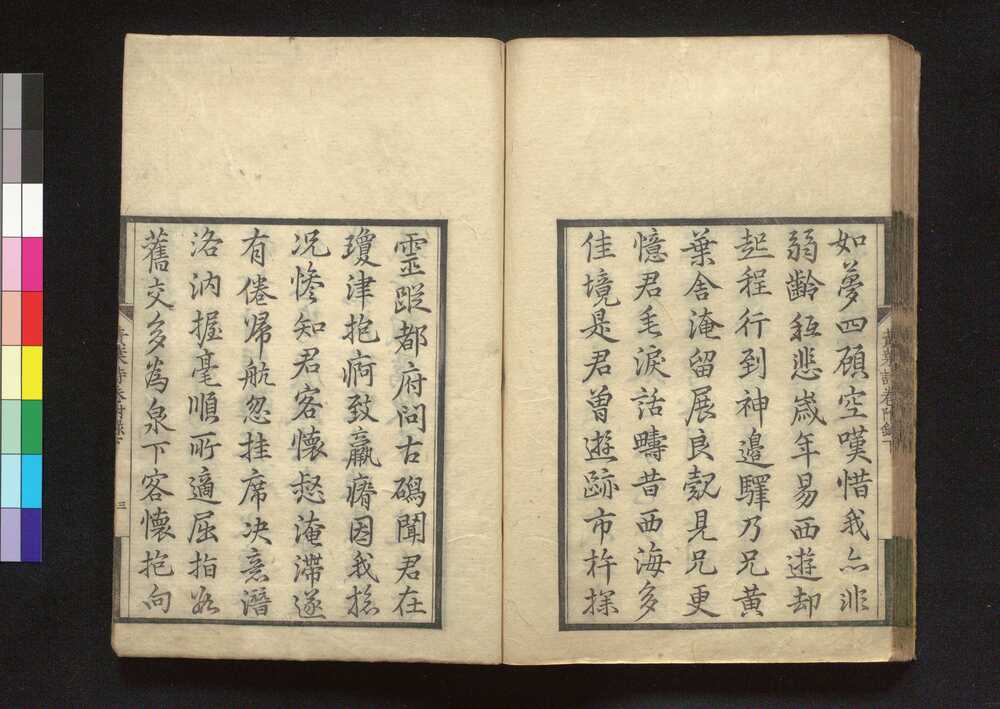 如夢四顧空嘆惜我亦非
弱齡極悲歳年易西遊却
起程行到神邉驛乃兄黄
葉舎淹留展良覿見兄更
憶君毛淚話疇昔西海多
佳境是君曽遊跡市杵探
黄葉詩巻附録下
靈蹤都府問古碣聞君在
瓊津抱痾致羸瘠因我旅
况惨知君客懐愁淹滞遂
有倦帰航忽挂席决意潜
洛汭握毫順所適屈指
舊交多為泉下客懐抱向
三